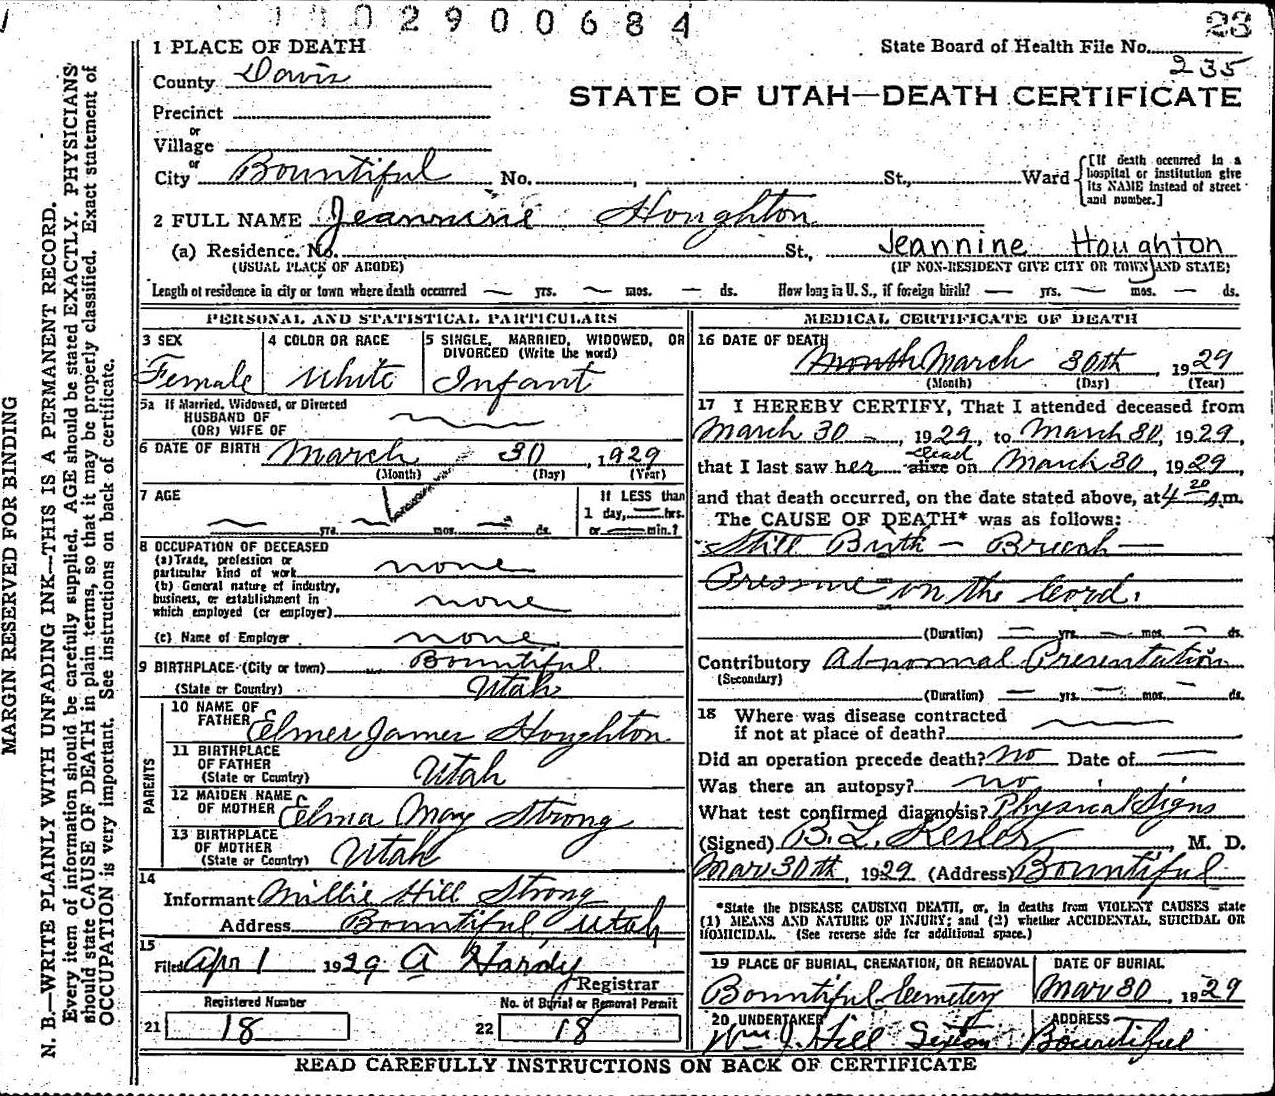 1 1 0 2 9 0 0 6 8 4
23
1 PLACE OF DEATH
State Board of Health File No.
235
County Davis
STATE OF UTAH—DEATH CERTIFICATE
Precinct
or
Village
or
City Bountiful No. , St., Ward
[If death occurred in a hospital or institution give its NAME instead of street and number.]
2 FULL NAME Jeannine Houghton
(a) Residence. No. St., Jeannine Houghton
(USUAL PLACE OF ABODE) (IF NON-RESIDENT GIVE CITY OR TOWN AND STATE)
Length of residence in city or town where death occurred — yrs. — mos. — ds. How long in U. S., if foreign birth? — yrs. — mos. — ds.
PERSONAL AND STATISTICAL PARTICULARS
3 SEX
Female
4 COLOR OR RACE
White
5 SINGLE, MARRIED, WIDOWED, OR DIVORCED (Write the word)
Infant
5a If Married, Widowed, or Divorced
HUSBAND OF
(OR) WIFE OF
6 DATE OF BIRTH March 30, 1929
(Month) (Day) (Year)
7 AGE
— yrs. — mos. — ds.
If LESS than
1 day, — hrs.
or — min.?
8 OCCUPATION OF DECEASED
(a) Trade, profession or
particular kind of work none
(b) General nature of industry,
business, or establishment in
which employed (or employer) none
(c) Name of Employer none
9 BIRTHPLACE (City or town) Bountiful
(State or Country) Utah
PARENTS
10 NAME OF
FATHER Elmer James Houghton
11 BIRTHPLACE
OF FATHER
(State or Country) Utah
12 MAIDEN NAME
OF MOTHER Elma May Strong
13 BIRTHPLACE
OF MOTHER
(State or Country) Utah
14
Informant Millie Hill Strong
Address Bountiful Utah
15
Filed Apr 1 1929 A Hardy
Registrar
Registered Number No. of Burial or Removal Permit
21 18 22 18
MEDICAL CERTIFICATE OF DEATH
16 DATE OF DEATH
March 30th, 1929
(Month) (Day) (Year)
17 I HEREBY CERTIFY, That I attended deceased from
March 30 —, 1929, to March 30, 1929,
dead
that I last saw her alive on March 30, 1929,
and that death occurred, on the date stated above, at 4 20 A.m.
The CAUSE OF DEATH* was as follows:
Still Birth — Breech —
Pressure on the cord.
(Duration) — yrs. — mos. — ds.
Contributory Abnormal Presentation
(Secondary)
(Duration) — yrs. — mos. — ds.
18 Where was disease contracted
if not at place of death?
Did an operation precede death? no Date of —
Was there an autopsy? no
What test confirmed diagnosis? Physical Signs
(Signed) B. L. Kesler, M. D.
Mar 30th, 1929 (Address) Bountiful
*State the DISEASE CAUSING DEATH, or, in deaths from VIOLENT CAUSES state
(1) MEANS AND NATURE OF INJURY; and (2) whether ACCIDENTAL, SUICIDAL OR
HOMICIDAL. (See reverse side for additional space.)
19 PLACE OF BURIAL, CREMATION, OR REMOVAL
Bountiful Cemetery
DATE OF BURIAL
Mar 30, 1929
20 UNDERTAKER
Wm J. Hill Sexton
ADDRESS
Bountiful
READ CAREFULLY INSTRUCTIONS ON BACK OF CERTIFICATE
MARGIN RESERVED FOR BINDING
N. B.—WRITE PLAINLY WITH UNFADING INK—THIS IS A PERMANENT RECORD.
Every item of information should be carefully supplied. AGE should be stated EXACTLY. PHYSICIANS
should state CAUSE OF DEATH in plain terms, so that it may be properly classified. Exact statement of
OCCUPATION is very important. See instructions on back of certificate.